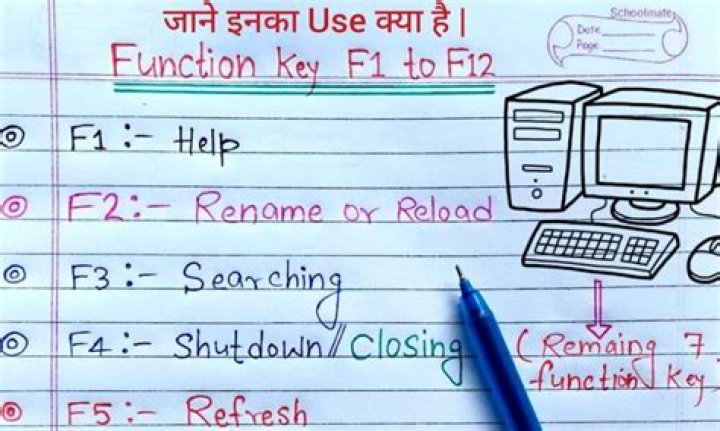 जाने इनका Use क्या है |
Schoolmate
Date
Page
Function key F1 to F12
F1 :- Help
F2:- Rename or Reload
F3 :- Searching
F4 :- Shutdown// Closing
(Remaing 7
function Key
F5 :- Refresh